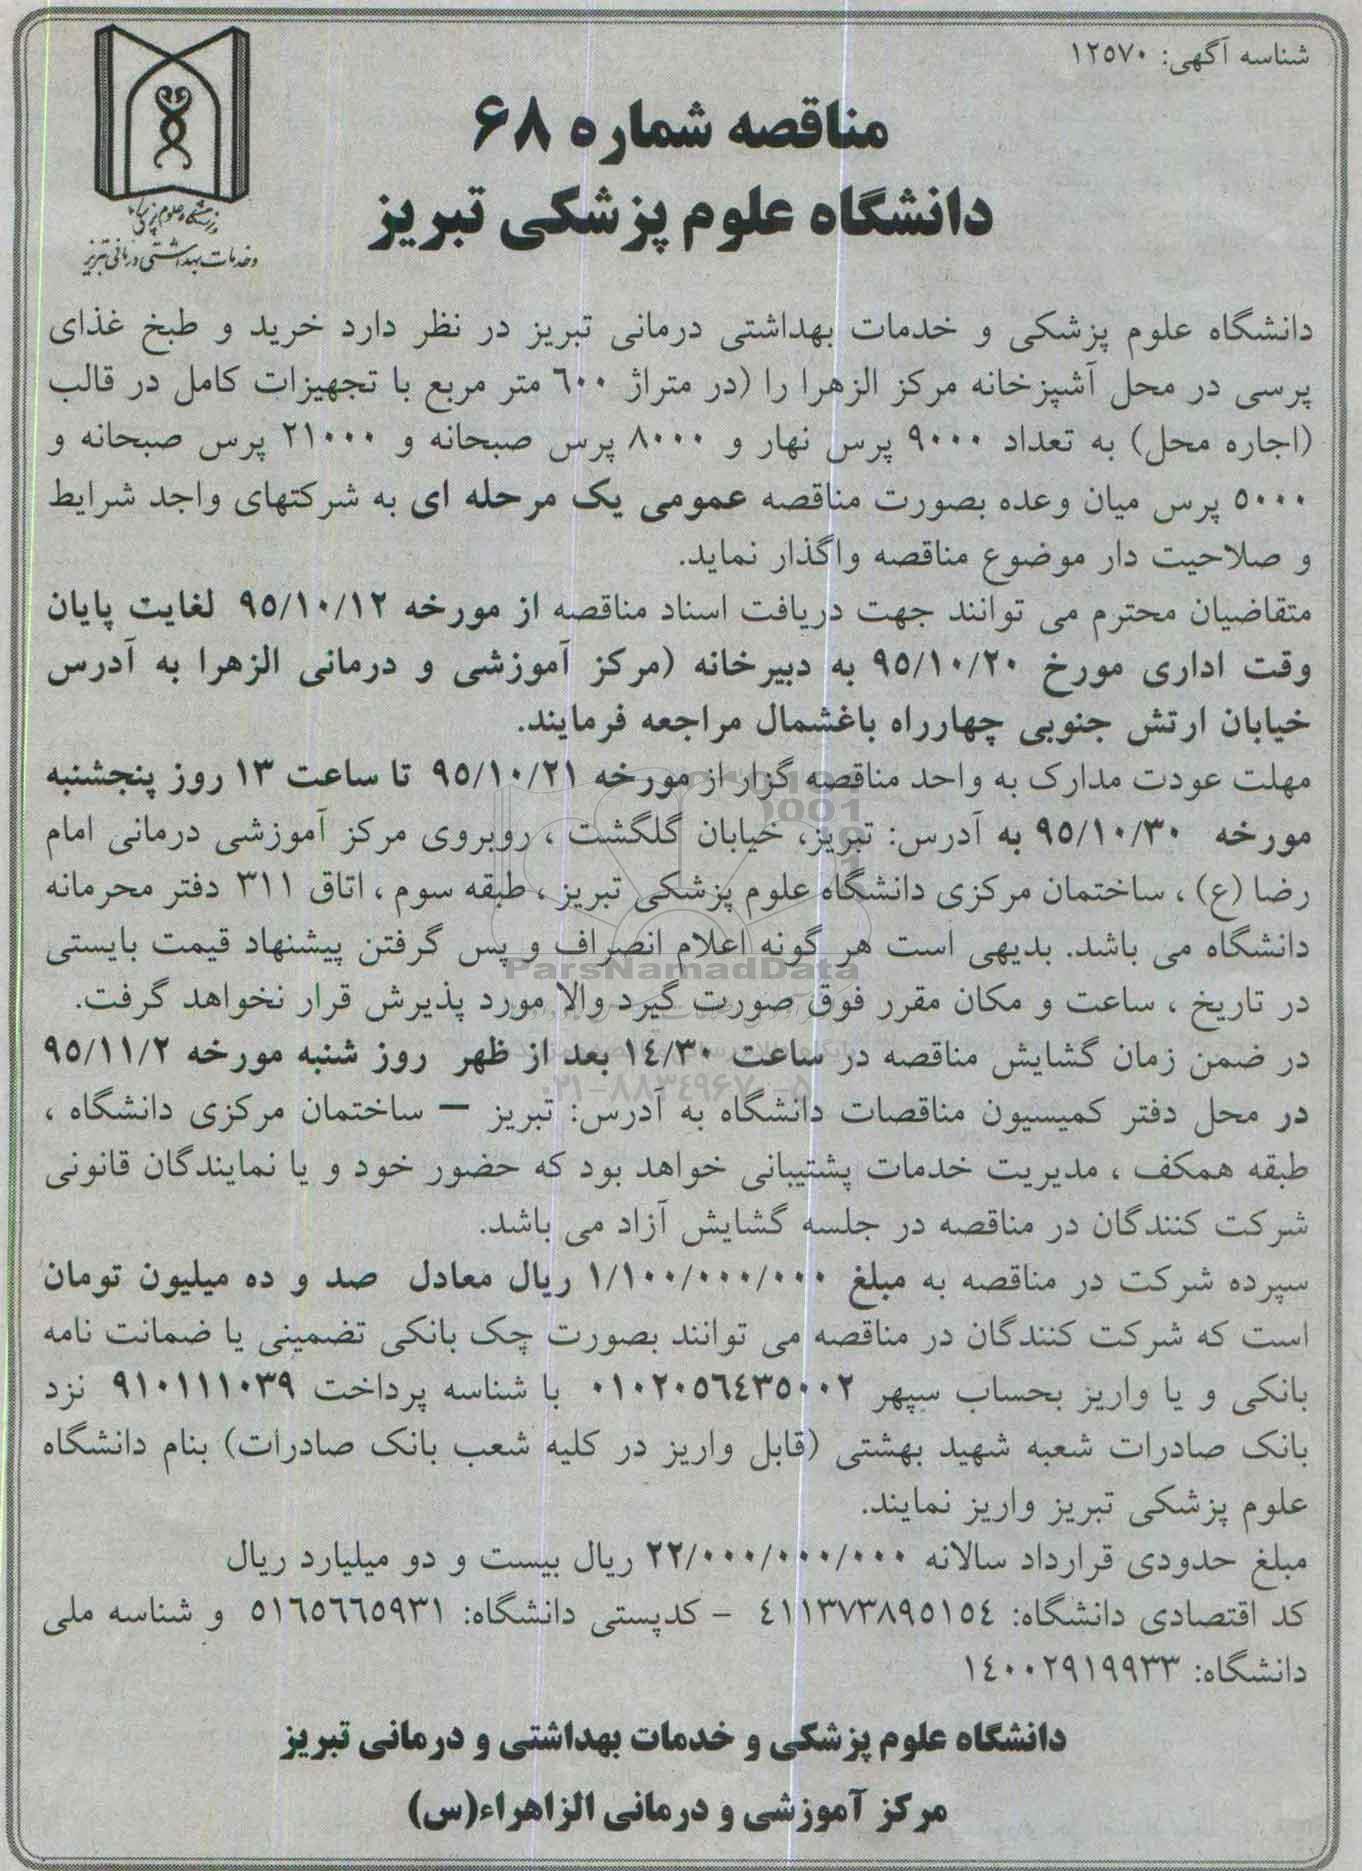 شناسه آگهی: ۱۲۵۷۰
مناقصه شماره ۶۸
دانشگاه علوم پزشکی تبریز
و خدمات بهداشتی درمانی تبریز
دانشگاه علوم پزشکی و خدمات بهداشتی درمانی تبریز در نظر دارد خرید و طبخ غذای
پرسی در محل آشپزخانه مرکز الزهرا را (در متراژ ۶۰۰ متر مربع با تجهیزات کامل در قالب
(اجاره محل) به تعداد ۹۰۰۰ پرس نهار و ۸۰۰۰ پرس صبحانه و ۲۱۰۰۰ پرس صبحانه و
۵۰۰۰ پرس میان وعده بصورت مناقصه عمومی یک مرحله ای به شرکتهای واجد شرایط
و صلاحیت دار موضوع مناقصه واگذار نماید.
متقاضیان محترم می توانند جهت دریافت اسناد مناقصه از مورخه ۹۵/۱۰/۱۲ لغایت پایان
وقت اداری مورخ ۹۵/۱۰/۲۰ به دبیرخانه (مرکز آموزشی و درمانی الزهرا به آدرس
خیابان ارتش جنوبی چهارراه باغشمال مراجعه فرمایند.
مهلت عودت مدارک به واحد مناقصه گزار از مورخه ۹۵/۱۰/۲۱ تا ساعت ۱۳ روز پنجشنبه
مورخه ۹۵/۱۰/۳۰ به آدرس: تبریز، خیابان گلگشت ، روبروی مرکز آموزشی درمانی امام
رضا (ع) ، ساختمان مرکزی دانشگاه علوم پزشکی تبریز ، طبقه سوم ، اتاق ۳۱۱ دفتر محرمانه
دانشگاه می باشد. بدیهی است هر گونه اعلام انصراف و پس گرفتن پیشنهاد قیمت بایستی
ParsNamadData
در تاریخ ، ساعت و مکان مقرر فوق صورت گیرد والا مورد پذیرش قرار نخواهد گرفت.
در ضمن زمان گشایش مناقصه در ساعت ۱۴/۳۰ بعد از ظهر روز شنبه مورخه ۹۵/۱۱/۲
۰۲۱-۸۸۳۴۹۶۷۰-۵
در محل دفتر کمیسیون مناقصات دانشگاه به آدرس: تبریز – ساختمان مرکزی دانشگاه ،
طبقه همکف ، مدیریت خدمات پشتیبانی خواهد بود که حضور خود و یا نمایندگان قانونی
شرکت کنندگان در مناقصه در جلسه گشایش آزاد می باشد.
سپرده شرکت در مناقصه به مبلغ ۱/۱۰۰/۰۰۰/۰۰۰ ریال معادل صد و ده میلیون تومان
است که شرکت کنندگان در مناقصه می توانند بصورت چک بانکی تضمینی یا ضمانت نامه
بانکی و یا واریز بحساب سپهر ۰۱۰۲۰۵۶۴۳۵۰۰۲ با شناسه پرداخت ۹۱۰۱۱۱۰۳۹ نزد
بانک صادرات شعبه شهید بهشتی (قابل واریز در کلیه شعب بانک صادرات) بنام دانشگاه
علوم پزشکی تبریز واریز نمایند.
مبلغ حدودی قرارداد سالانه ۲۲/۰۰۰/۰۰۰/۰۰۰ ریال بیست و دو میلیارد ریال
کد اقتصادی دانشگاه: ۴۱۱۳۷۳۸۹۵۱۵۴ – کدپستی دانشگاه: ۵۱۶۵۶۶۵۹۳۱ و شناسه ملی
دانشگاه: ۱۴۰۰۲۹۱۹۹۳۳
دانشگاه علوم پزشکی و خدمات بهداشتی و درمانی تبریز
مرکز آموزشی و درمانی الزاهراء(س)